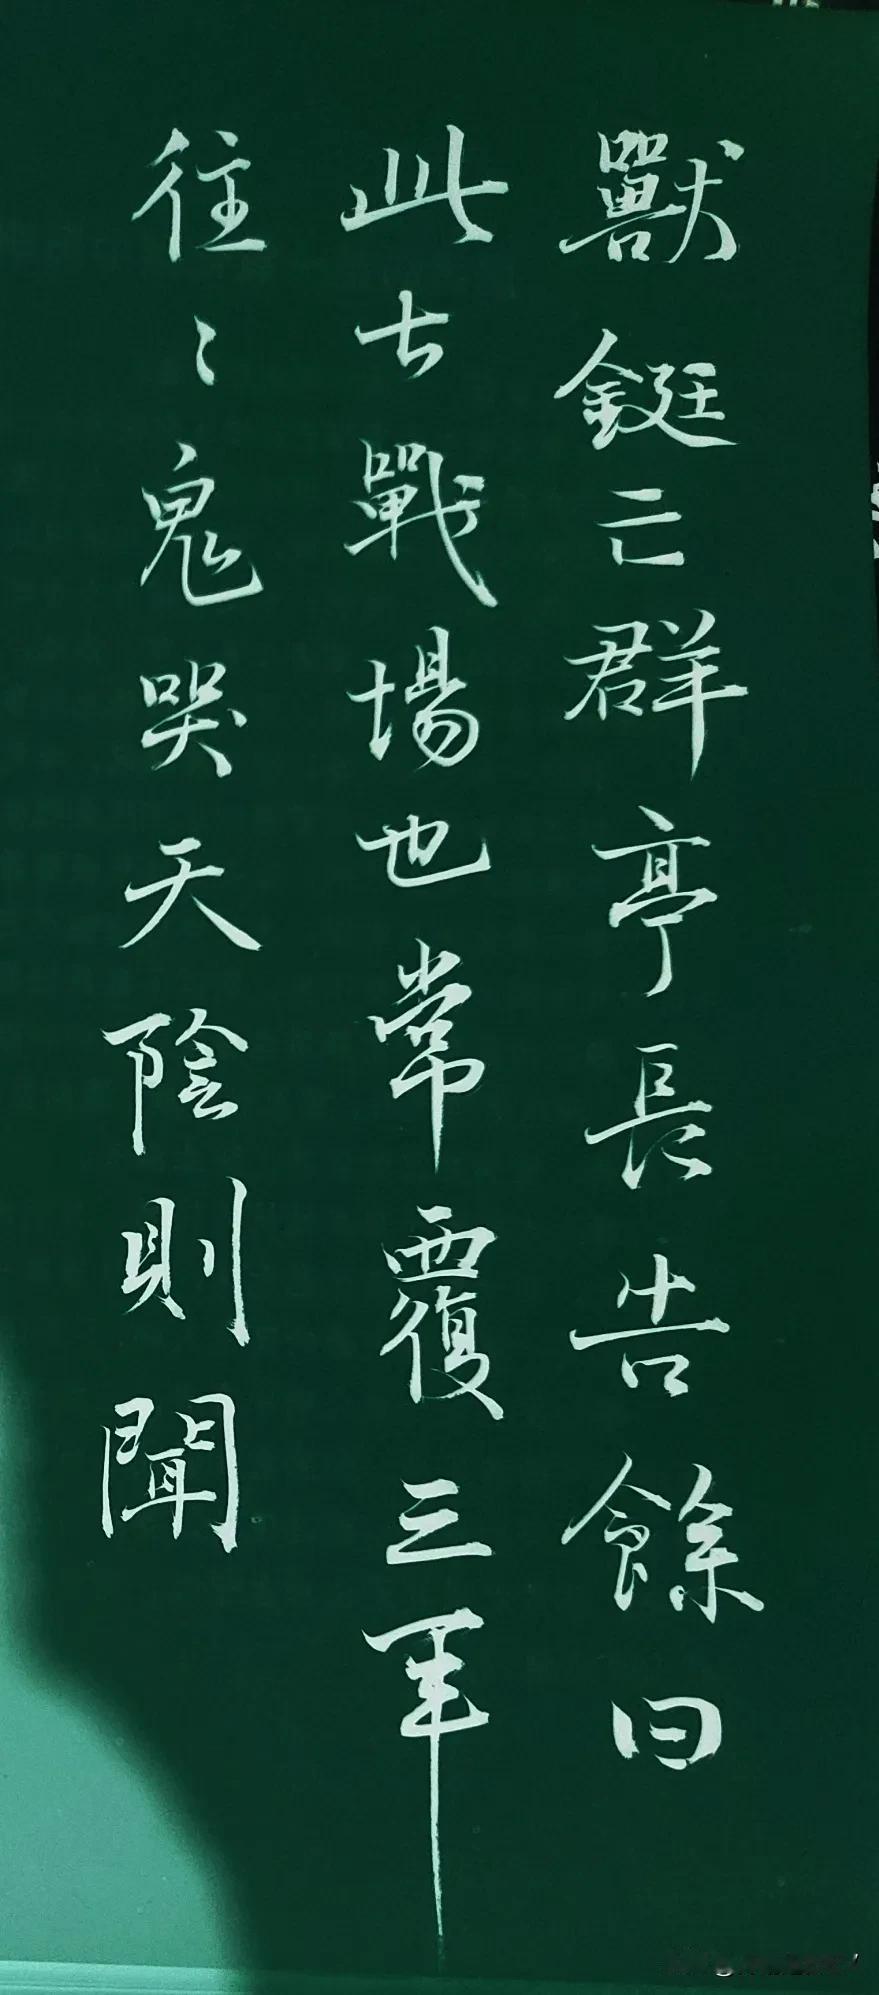 獸鋌亡群亭長告餘曰
此古戰場也常覆三軍
往〻鬼哭天陰則聞